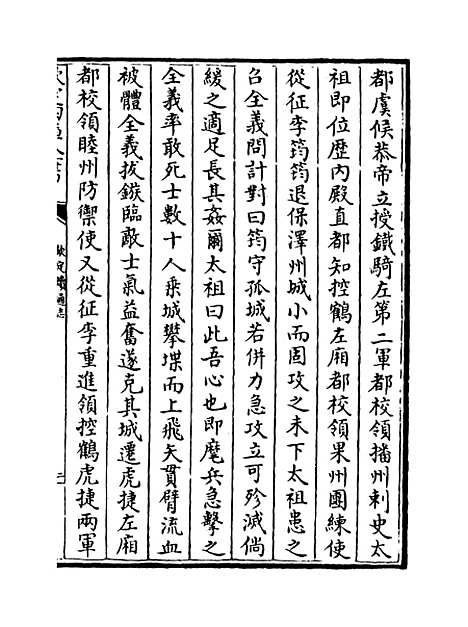 都虞候恭帝立授鐵騎左第二軍都校領播州刺史太
祖即位歴内殿直都知控鶴左廂都校領果州團練使
從征李筠筠退保澤州城小而固攻之未下太祖患之
召全義問計對曰筠守孤城若併力急攻立可殄滅倘
緩之適足長其姦爾太祖曰此吾心也即麾兵急擊之
全義率敢死士數十人乗城攀堞而上飛矢貫臂流血
被體全義拔鏃臨敵士氣益奮遂克其城遷虎捷左廂
都校領睦州防禦使又從征李重進領控鶴虎捷兩軍
欽定續通志